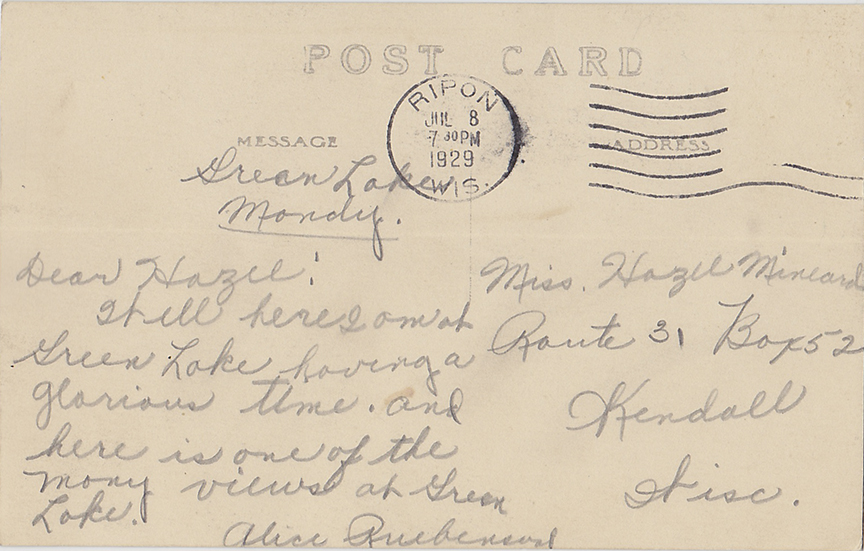 POST CARD
RIPON
JUL 8
7 30 PM
1929
WIS.
MESSAGE
ADDRESS
Green Lake
Mondy.
Dear Hazel!
Well here I am at
Green Lake having a
glorious time. and
here is one of the
many views at Green
Lake.
Alice
Miss. Hazel
Route 31 Box 52
Kendall
Wisc.